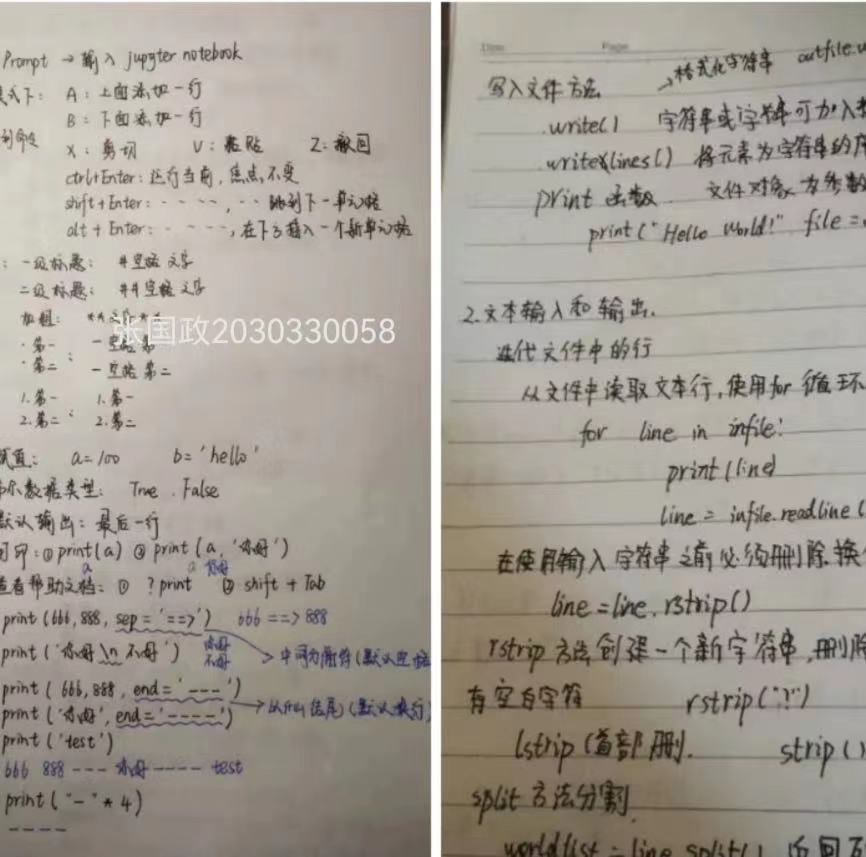 Prompt → 输入 jupyter notebook
式下: A: 上面添加一行
B: 下面添加一行
X: 剪切 V: 粘贴 Z: 撤回
ctrl+Enter: 运行当前, 焦点不变
shift+Enter: - - - -, -- 跳到下一单元格
alt + Enter: - - - -, 在下方插入一个新单元格
: 一级标题: #空格 文字
二级标题: ##空格 文字
加粗: **文字**
张国政2030330058
·第一 : - 空格 第一
·第二 - 空格 第二
1.第一 : 1.第一
2.第二 2.第二
赋值: a=100 b='hello'
布尔数据类型: True . False
默认输出: 最后一行
打印: ① print(a) ② print(a, '你好')
a a 你好
查看帮助文档: ① ?print ② shift + Tab
print(666,888, sep='==>') 666==>888
print('你好\n不好') 你好
不好
→ 中间为啥符(默认空格
print( 666,888, end='---')
print('你好', end='----') → 以什么结尾(默认换行)
print('test')
666 888 --- 你好 ---- test
print("-"*4)
----
Date Page
写入文件方法 →格式化字符串 outfile.w
.write() 字符串或字符串可加入
.writelines() 将元素为字符串的
print 函数. 文件对象为参数
print("Hello World!" file=
2.文本输入和输出.
迭代文件中的行
从文件中读取文本行,使用for循环
for line in infile:
print(line)
line = infile.readline(
在使用输入字符串之前必须删除换
line=line.rstrip()
rstrip方法创建一个新字符串,删除
有空白字符 rstrip("?")
lstrip(首部删. strip()
split方法分割.
worldlist = line.split() 返回